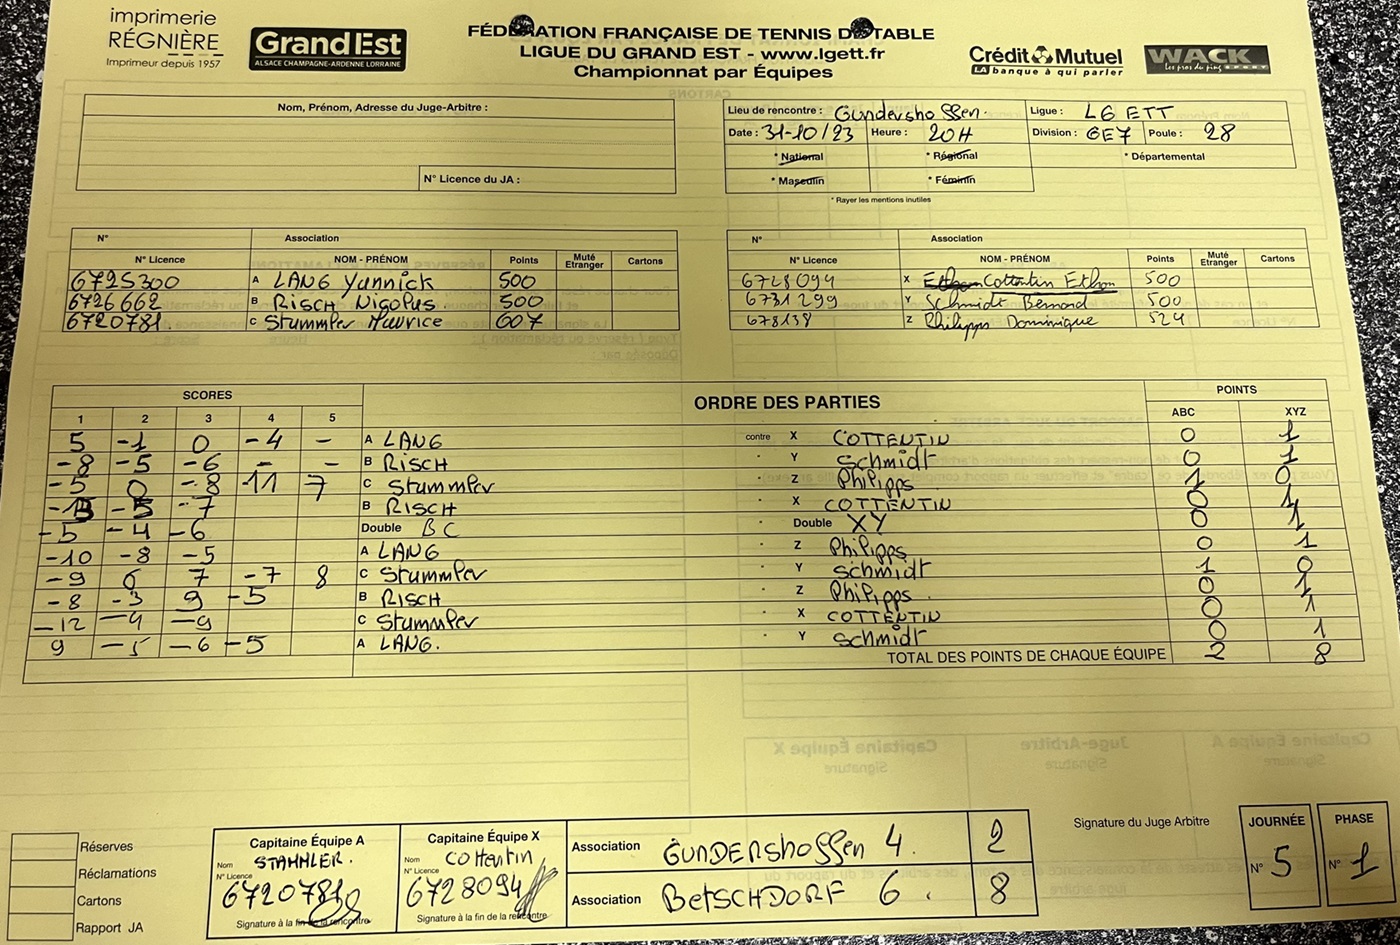 imprimerie
RÉGNIÈRE
Imprimeur depuis 1957
Grand Est
ALSACE CHAMPAGNE-ARDENNE LORRAINE
FÉDÉRATION FRANÇAISE DE TENNIS DE TABLE
LIGUE DU GRAND EST - www.lgett.fr
Championnat par Équipes
Crédit Mutuel
LA banque à qui parler
WACK
Les pros du ping SPORT
Nom, Prénom, Adresse du Juge-Arbitre :
N° Licence du JA :
Lieu de rencontre : Gundershoffen. Ligue : LGETT
Date : 31-10/23 Heure : 20H Division : GE7 Poule : 28
* National * Régional * Départemental
* Masculin * Féminin
* Rayer les mentions inutiles
N° Association
N° Licence NOM - PRÉNOM Points Muté Etranger Cartons
6725300 A LANG Yannick 500
6726662 B RISCH Nicolus 500
6720781. C Stummler Maurice 607
N° Association
N° Licence NOM - PRÉNOM Points Muté Etranger Cartons
6728094 X Ethan Cottentin Ethan 500
6731299 Y Schmidt Bernard 500
678138 Z Philipps Dominique 524
SCORES ORDRE DES PARTIES POINTS
1 2 3 4 5 ABC XYZ
5 -1 0 -4 - A LANG contre X COTTENTIN 0 1
-8 -5 -6 - - B RISCH Y Schmidt 0 1
-5 0 -8 -11 7 C Stummler Z Philipps 1 0
-13 -5 -7 B RISCH X COTTENTIN 0 1
-5 -4 -6 Double BC Double XY 0 1
-10 -8 -5 A LANG Z Philipps 0 1
-9 6 7 -7 8 C Stummler Y Schmidt 1 0
-8 -3 9 -5 B RISCH Z Philipps. 0 1
-12 -4 -9 C Stummler X COTTENTIN 0 1
9 -5 -6 -5 A LANG. Y Schmidt 0 1
TOTAL DES POINTS DE CHAQUE ÉQUIPE 2 8
Réserves
Réclamations
Cartons
Rapport JA
Capitaine Équipe A
Nom STAMMLER.
N° Licence
6720781
Signature à la fin de la rencontre
Capitaine Équipe X
Nom Cottentin
N° Licence
6728094
Signature à la fin de la rencontre
Association GUNDERShoffen 4. 2
Association BetSCHDORF 6. 8
Signature du Juge Arbitre
JOURNÉE
N° 5
PHASE
N° 1